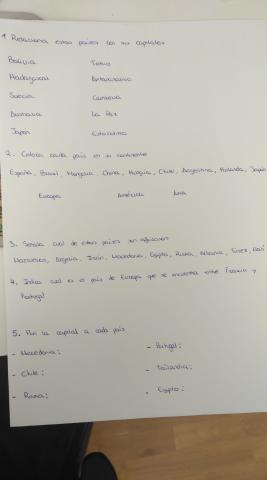 1 Relaciona estos países con su capital
Bolivia Tokio
Madagascar Antananarivo
Suecia Canberra
Australia La Paz
Japón Estocolmo
2. Coloca cada país en su continente
España, Brasil, Mongolia, China, Hungría, Chile, Argentina, Holanda, Japón
Europa América Asia
3. Señala cual de estos países son africanos
Marruecos, Argelia, Irán, Macedonia, Egipto, Rusia, Albania, Túnez, Perú
4. Indica cual es el país de Europa que se encuentra entre Francia y
Portugal
5. Pon la capital a cada país
- Macedonia: - Portugal:
- Chile: - Tailandia:
- Rusia: - Egipto: